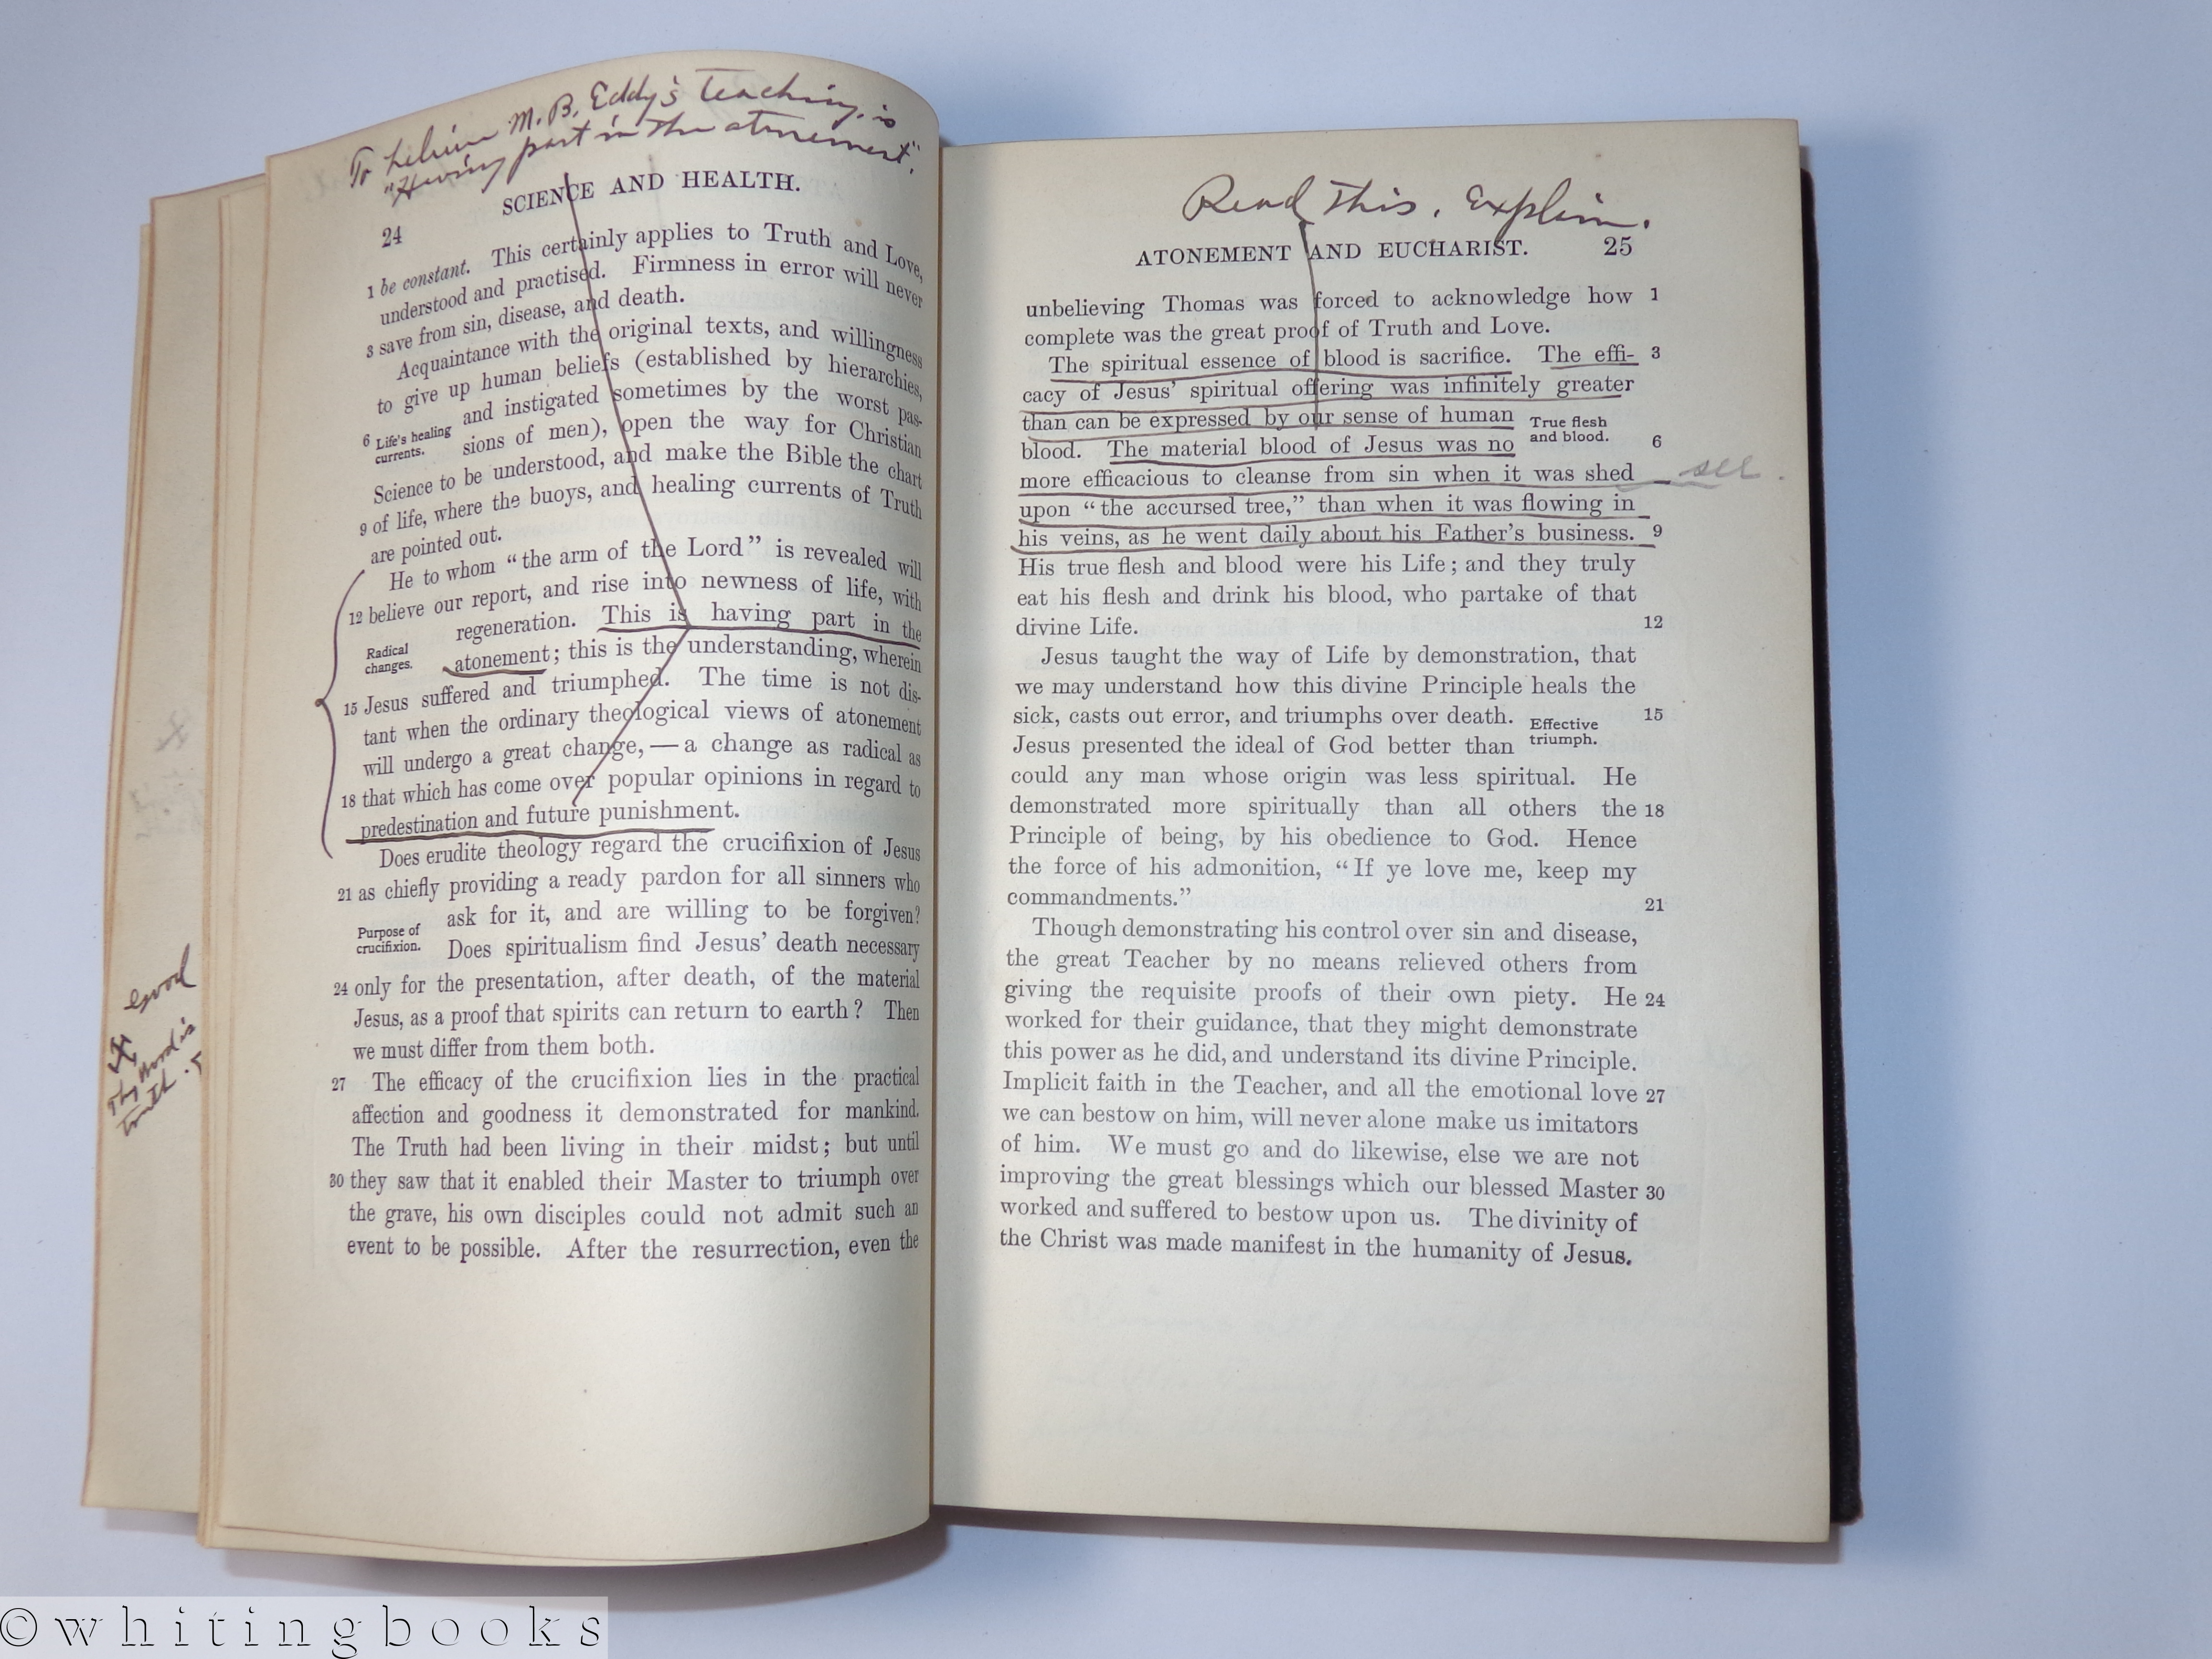 To believe M. B. Eddy's teaching is
"Having part in the atonement".
SCIENCE AND HEALTH.
24
1 be constant. This certainly applies to Truth and Love,
understood and practised. Firmness in error will never
3 save from sin, disease, and death.
Acquaintance with the original texts, and willingness
to give up human beliefs (established by hierarchies,
6 Life's healing currents. and instigated sometimes by the worst pas-
sions of men), open the way for Christian
Science to be understood, and make the Bible the chart
9 of life, where the buoys, and healing currents of Truth
are pointed out.
He to whom “the arm of the Lord” is revealed will
12 believe our report, and rise into newness of life, with
regeneration. This is having part in the
Radical changes. atonement; this is the understanding, wherein
15 Jesus suffered and triumphed. The time is not dis-
tant when the ordinary theological views of atonement
will undergo a great change, — a change as radical as
18 that which has come over popular opinions in regard to
predestination and future punishment.
Does erudite theology regard the crucifixion of Jesus
21 as chiefly providing a ready pardon for all sinners who
ask for it, and are willing to be forgiven?
Purpose of crucifixion. Does spiritualism find Jesus' death necessary
24 only for the presentation, after death, of the material
Jesus, as a proof that spirits can return to earth? Then
we must differ from them both.
27 The efficacy of the crucifixion lies in the practical
affection and goodness it demonstrated for mankind.
The Truth had been living in their midst; but until
30 they saw that it enabled their Master to triumph over
the grave, his own disciples could not admit such an
event to be possible. After the resurrection, even the
good
Thy word is
truth.
Read This. Explain.
ATONEMENT AND EUCHARIST. 25
unbelieving Thomas was forced to acknowledge how 1
complete was the great proof of Truth and Love.
The spiritual essence of blood is sacrifice. The effi- 3
cacy of Jesus' spiritual offering was infinitely greater
than can be expressed by our sense of human True flesh and blood.
blood. The material blood of Jesus was no 6
more efficacious to cleanse from sin when it was shed see.
upon “the accursed tree,” than when it was flowing in
his veins, as he went daily about his Father's business. 9
His true flesh and blood were his Life; and they truly
eat his flesh and drink his blood, who partake of that
divine Life. 12
Jesus taught the way of Life by demonstration, that
we may understand how this divine Principle heals the
sick, casts out error, and triumphs over death. Effective triumph. 15
Jesus presented the ideal of God better than
could any man whose origin was less spiritual. He
demonstrated more spiritually than all others the 18
Principle of being, by his obedience to God. Hence
the force of his admonition, “If ye love me, keep my
commandments.” 21
Though demonstrating his control over sin and disease,
the great Teacher by no means relieved others from
giving the requisite proofs of their own piety. He 24
worked for their guidance, that they might demonstrate
this power as he did, and understand its divine Principle.
Implicit faith in the Teacher, and all the emotional love 27
we can bestow on him, will never alone make us imitators
of him. We must go and do likewise, else we are not
improving the great blessings which our blessed Master 30
worked and suffered to bestow upon us. The divinity of
the Christ was made manifest in the humanity of Jesus.
© whitingbooks